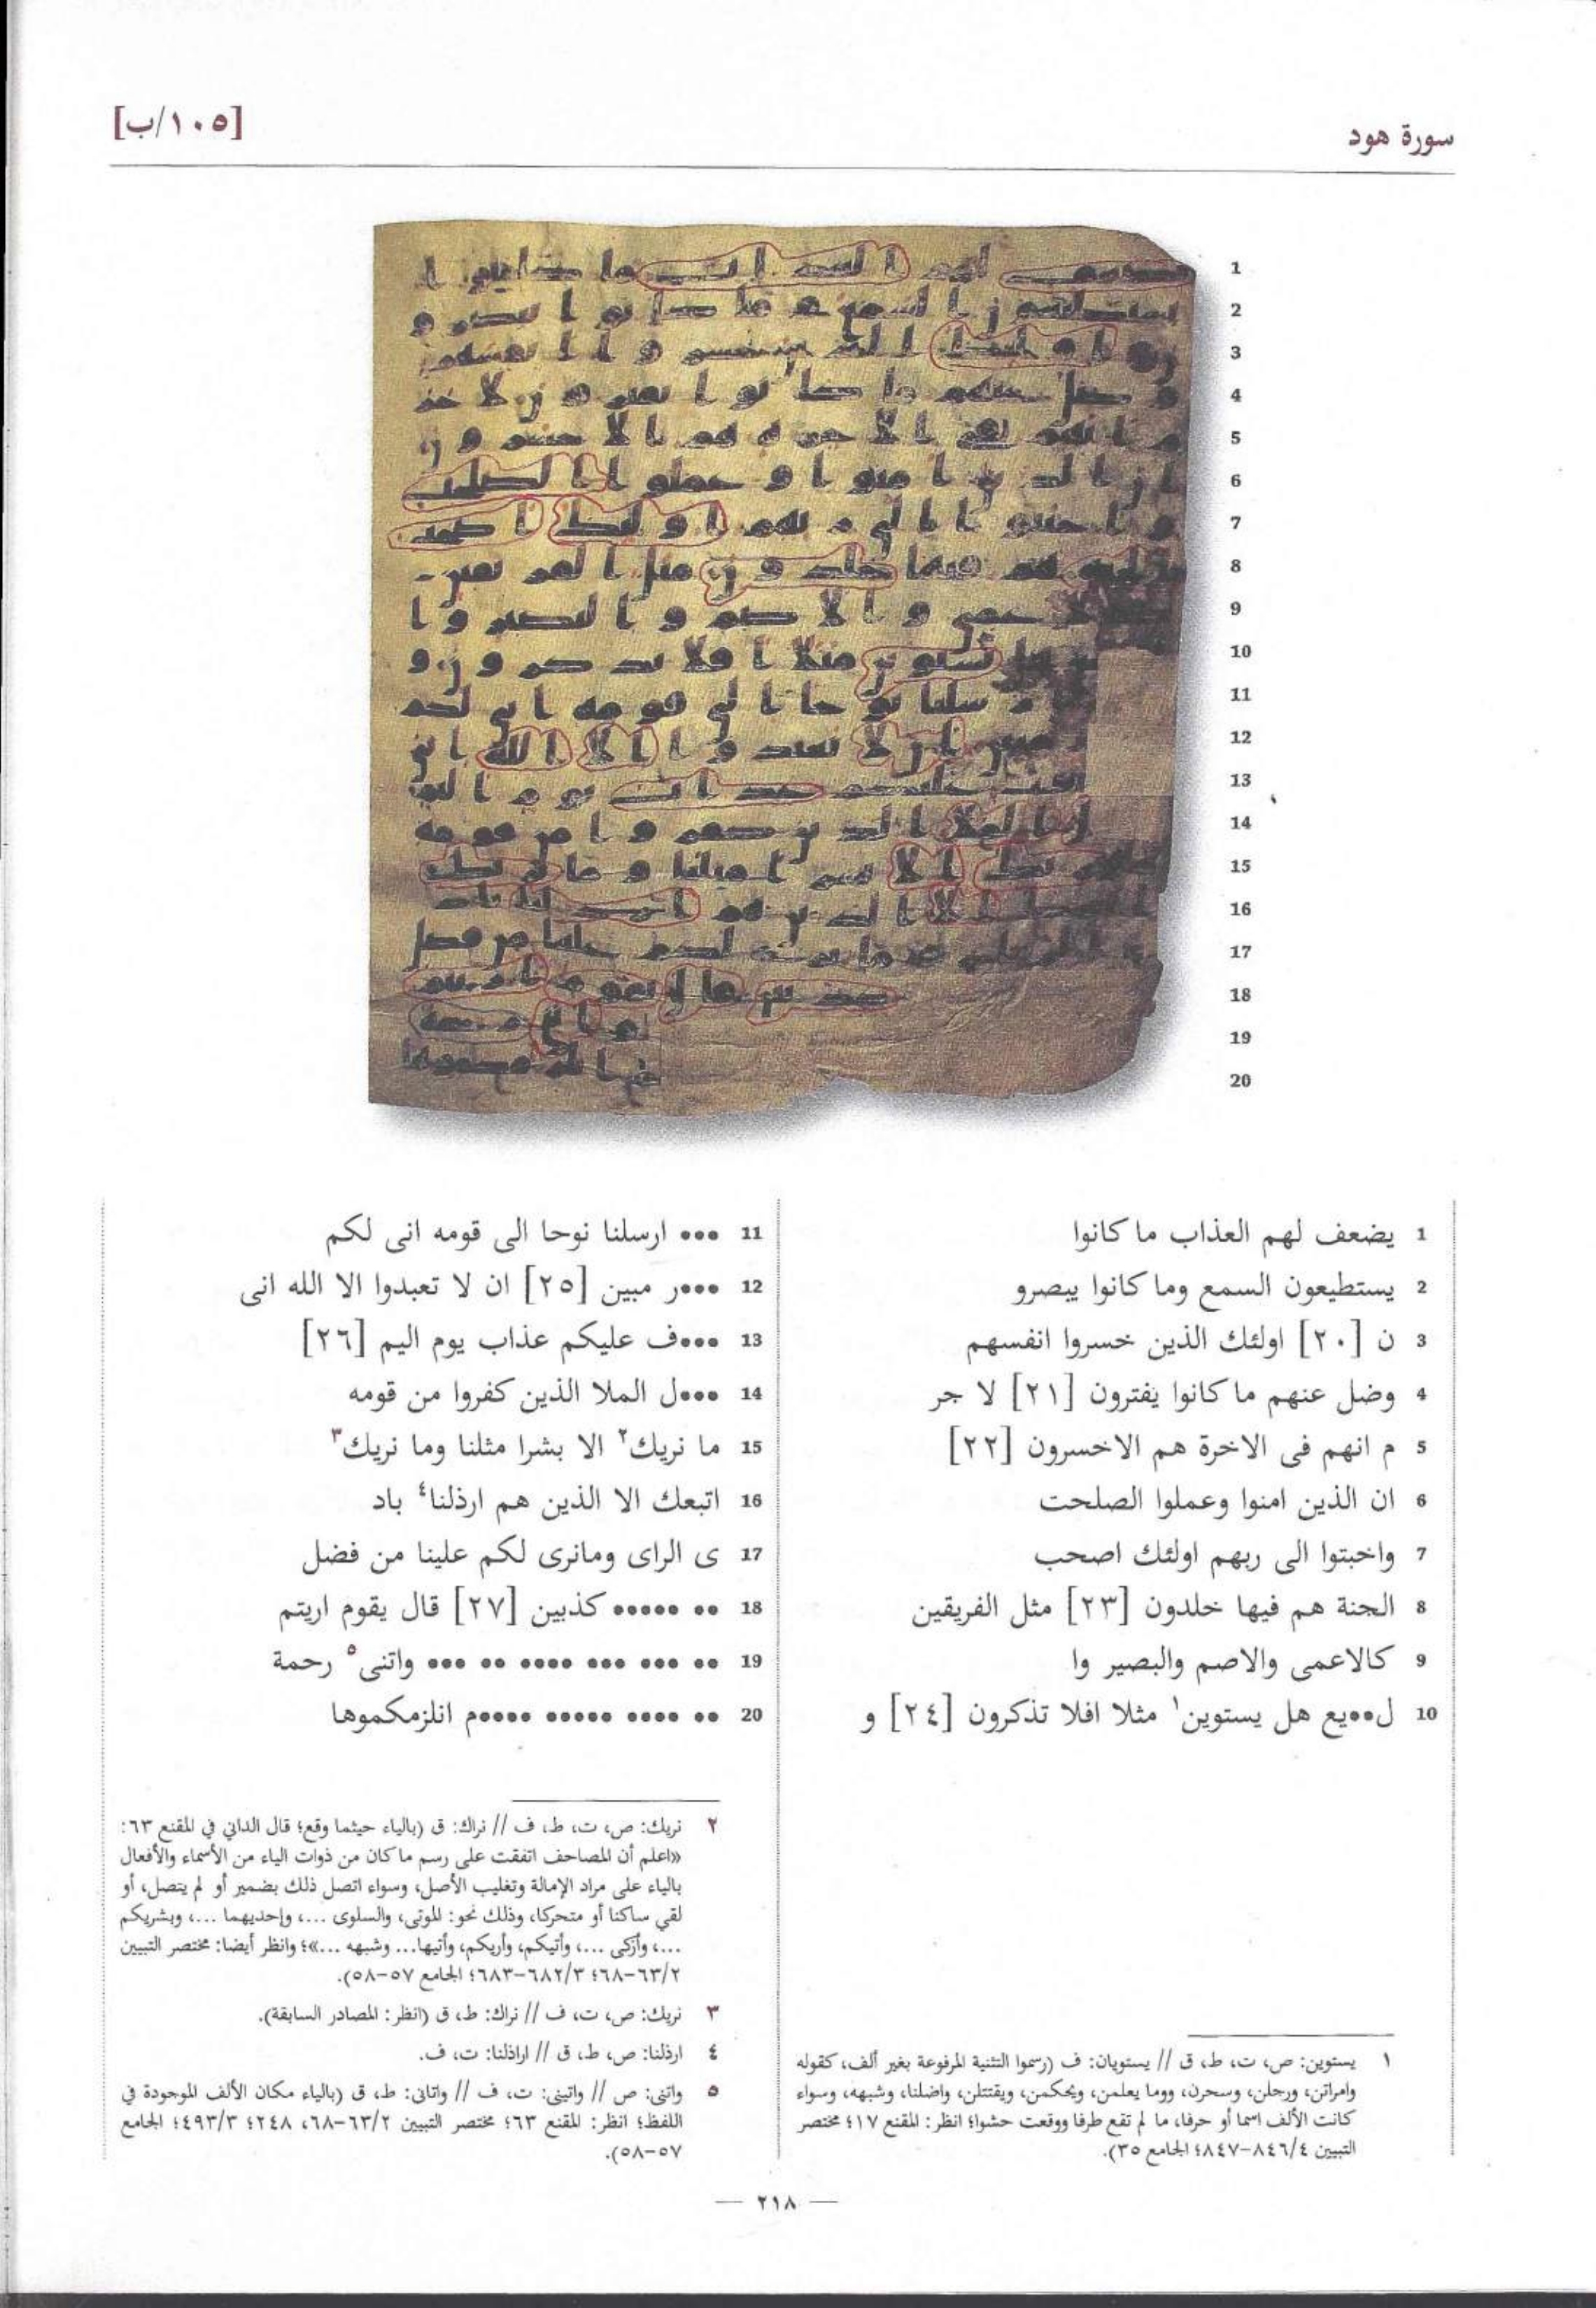 سورة هود
[١٠٥/ب]
1 يضعف لهم العذاب ما كانوا
2 يستطيعون السمع وما كانوا يبصرو
3 ن [٢٠] اولئك الذين خسروا انفسهم
4 وضل عنهم ما كانوا يفترون [٢١] لا جر
5 م انهم فى الاخرة هم الاخسرون [٢٢]
6 ان الذين امنوا وعملوا الصلحت
7 واخبتوا الى ربهم اولئك اصحب
8 الجنة هم فيها خلدون [٢٣] مثل الفريقين
9 كالاعمى والاصم والبصير وا
10 ل••يع هل يستوين١ مثلا افلا تذكرون [٢٤] و
11 ••• ارسلنا نوحا الى قومه انى لكم
12 •••ر مبين [٢٥] ان لا تعبدوا الا الله انى
13 •••ف عليكم عذاب يوم اليم [٢٦]
14 •••ل الملا الذين كفروا من قومه
15 ما نريك٢ الا بشرا مثلنا وما نريك٣
16 اتبعك الا الذين هم ارذلنا٤ باد
17 ى الراى ومانرى لكم علينا من فضل
18 •• ••••• كذبين [٢٧] قال يقوم اريتم
19 •• ••• ••• •••• •• ••• واتنى٥ رحمة
20 •• •••• ••••• ••••م انلزمكموها
١ يستوين: ص، ت، ط، ق // يستويان: ف (رسموا التثنية المرفوعة بغير ألف، كقوله
وامراتن، ورجلن، وسحرن، ووما يعلمن، ويحكمن، ويقتتلن، واضلنا، وشبهه، وسواء
كانت الألف اسما أو حرفا، ما لم تقع طرفا ووقعت حشوا؛ انظر: المقنع ١٧؛ مختصر
التبيين ٨٤٦/٤-٨٤٧؛ الجامع ٣٥).
٢ نريك: ص، ت، ط، ف // نراك: ق (بالياء حيثما وقع؛ قال الداني في المقنع ٦٣:
«اعلم أن المصاحف اتفقت على رسم ما كان من ذوات الياء من الأسماء والأفعال
بالياء على مراد الإمالة وتغليب الأصل، وسواء اتصل ذلك بضمير أو لم يتصل، أو
لقي ساكنا أو متحركا، وذلك نحو: الموتى، والسلوى ...، وإحديهما ...، وبشريكم
...، وأزكى ...، وأتيكم، وأريكم، وأتيها... وشبهه ...»؛ وانظر أيضا: مختصر التبيين
٦٣/٢-٦٨؛ ٦٨٢/٣-٦٨٣؛ الجامع ٥٧-٥٨).
٣ نريك: ص، ت، ف // نراك: ط، ق (انظر: المصادر السابقة).
٤ ارذلنا: ص، ط، ق // اراذلنا: ت، ف.
٥ واتنى: ص // واتينى: ت، ف // واتانى: ط، ق (بالياء مكان الألف الموجودة في
اللفظ؛ انظر: المقنع ٦٣؛ مختصر التبيين ٦٣/٢-٦٨، ٢٤٨؛ ٤٩٣/٣؛ الجامع
٥٧-٥٨).
— ٢١٨ —